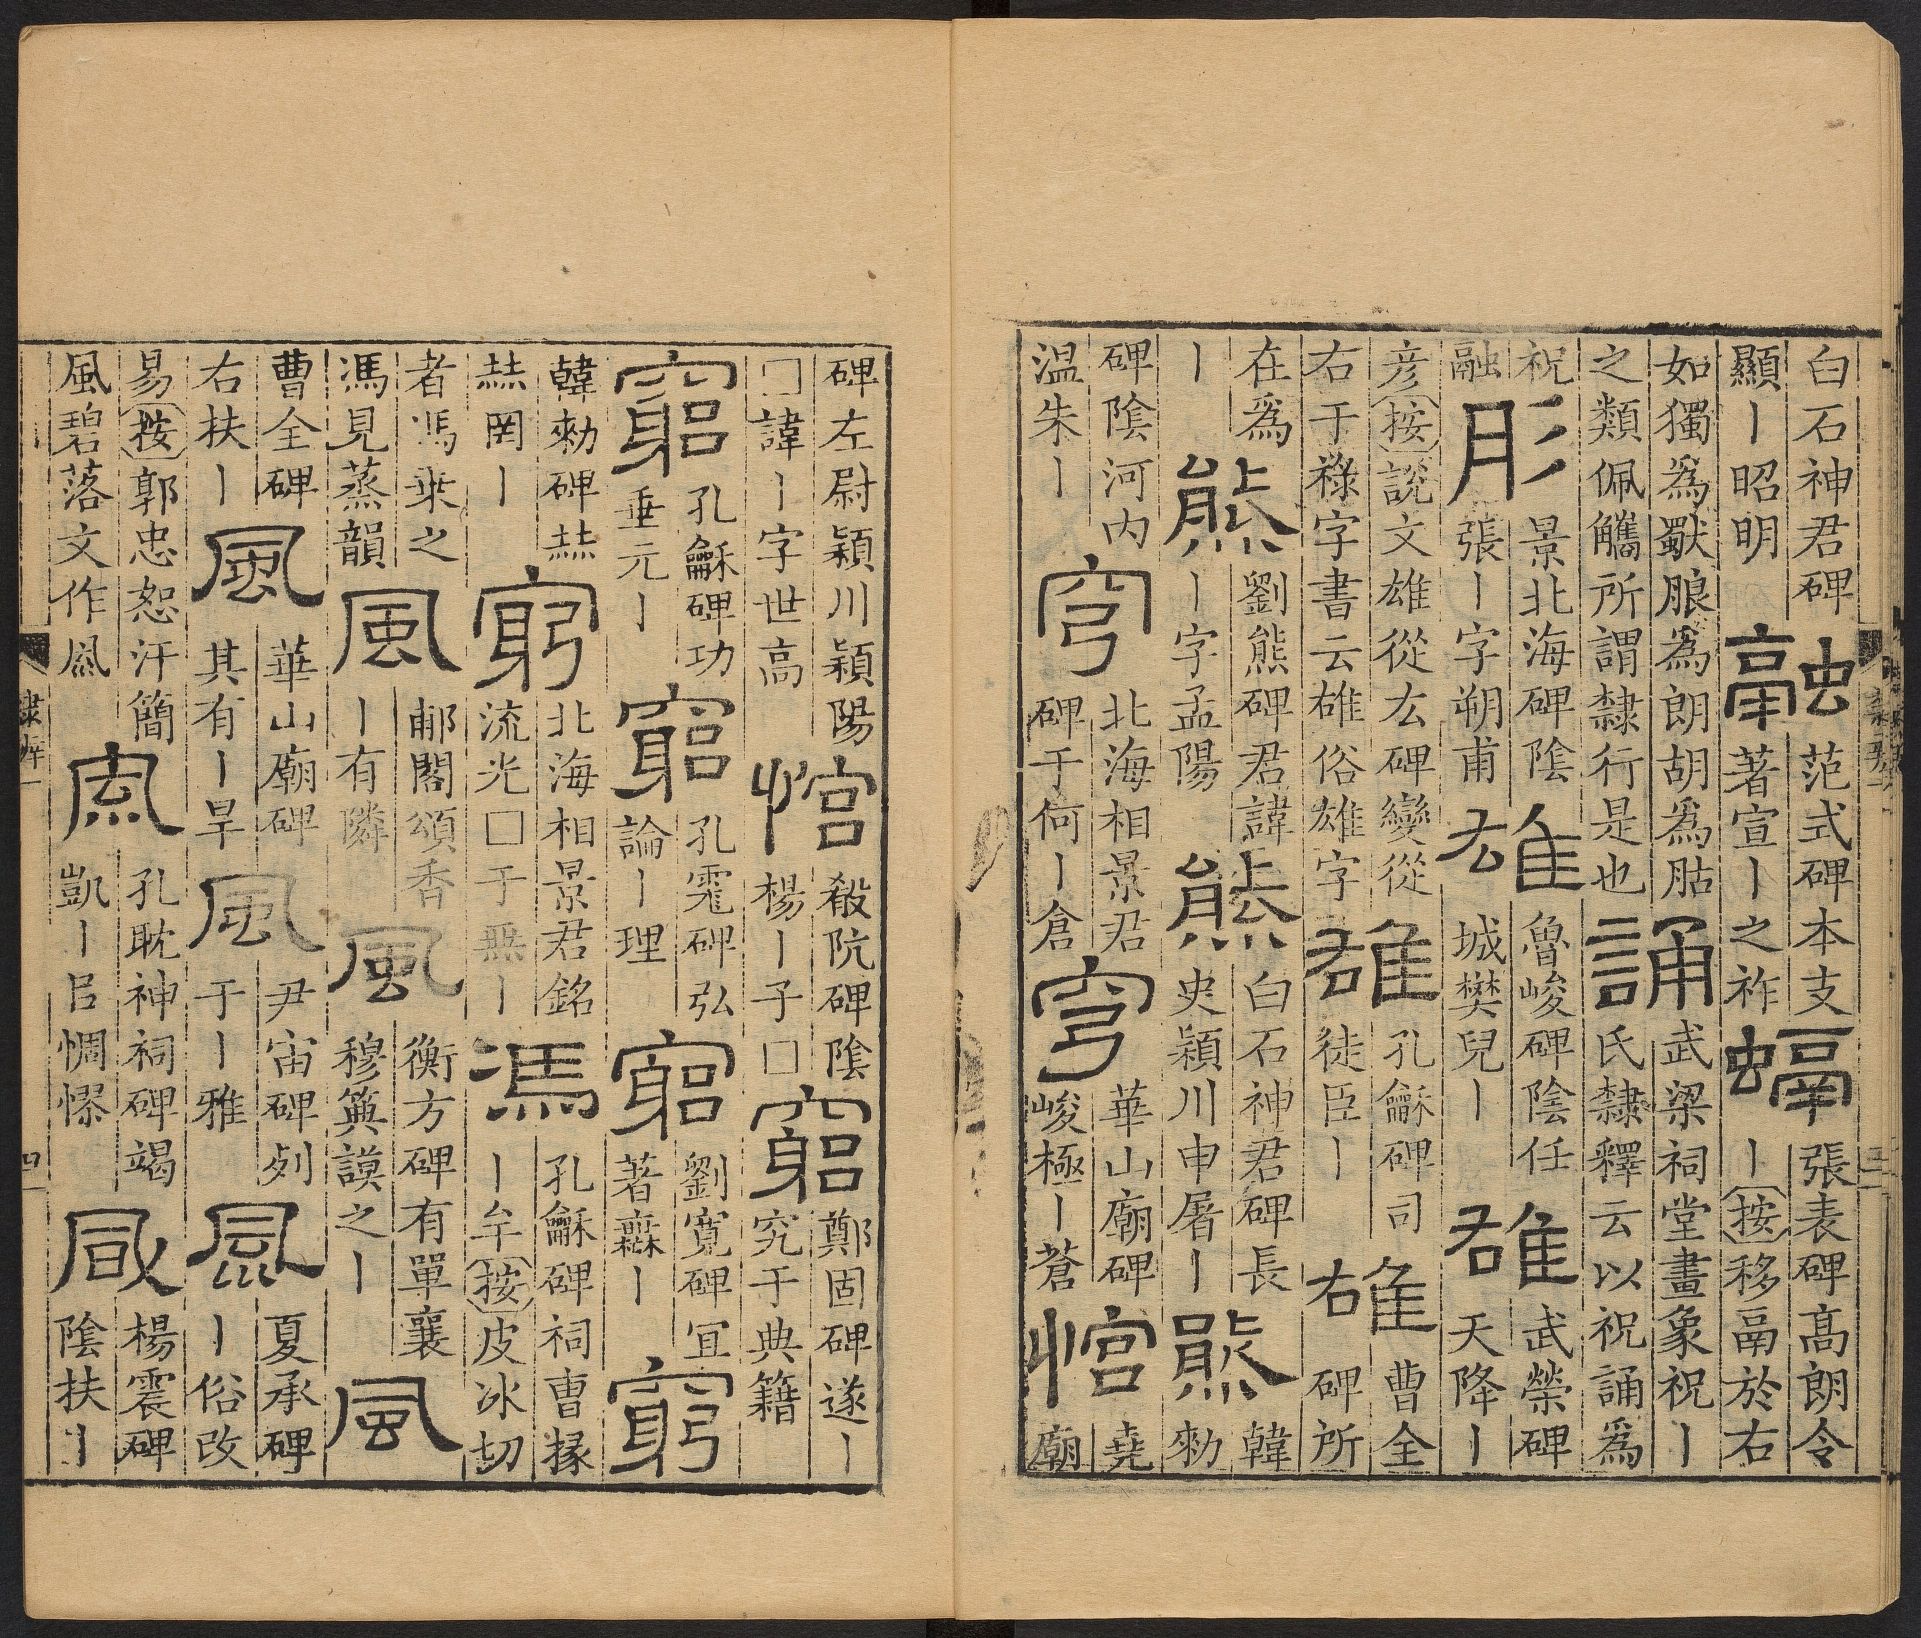 白石神君碑
顯丨昭明
融
范式碑本支
著宣丨之祚
螎
張表碑高朗令
丨按移鬲於右
如獨爲獸朖爲朗胡爲䏩
之類佩觿所謂隸行是也
誦
武梁祠堂畫象祝丨
氏隸釋云以祝誦爲
祝
融
肜
景北海碑陰
張丨字朔甫
雄
魯峻碑陰任
城樊兒丨
雄
武榮碑
天降丨
彦按說文雄從厷碑變從
右干祿字書云䧺俗雄字
雄
孔龢碑司
徒臣丨
雄
曹全
碑所
在爲
丨
熊
劉熊碑君諱
丨字孟陽
熊
白石神君碑長
史穎川申屠丨
熊
韓
勑
碑陰河内
温朱丨
穹
北海相景君
碑于何丨倉
穹
華山廟碑
峻極丨蒼
悺
堯
廟
碑左尉穎川穎陽
□諱丨字世高
悺
殽阬碑陰
楊丨子□
窮
鄭固碑遂丨
究于典籍
窮
孔龢碑功
垂元丨
窮
孔宙碑弘
論丨理
窮
劉寬碑宜
著丨
窮
韓勑碑𠀤
𠀤罔丨
窮
北海相景君銘
流光□于無丨
馮
孔龢碑祠曹掾
丨牟按皮冰切
者馮乘之
馮見蒸韻
風
郙閣頌香
丨有隣
風
衡方碑有單襄
穆典謨之丨
風
曹全碑
右扶丨
風
華山廟碑
其有丨旱
風
尹宙碑列
于丨雅
風
夏承碑
丨俗改
易按郭忠恕汗簡
風碧落文作凬
風
孔耽神祠碑竭
凱丨㠯惆憀
風
楊震碑
陰扶丨
隸辨一
四